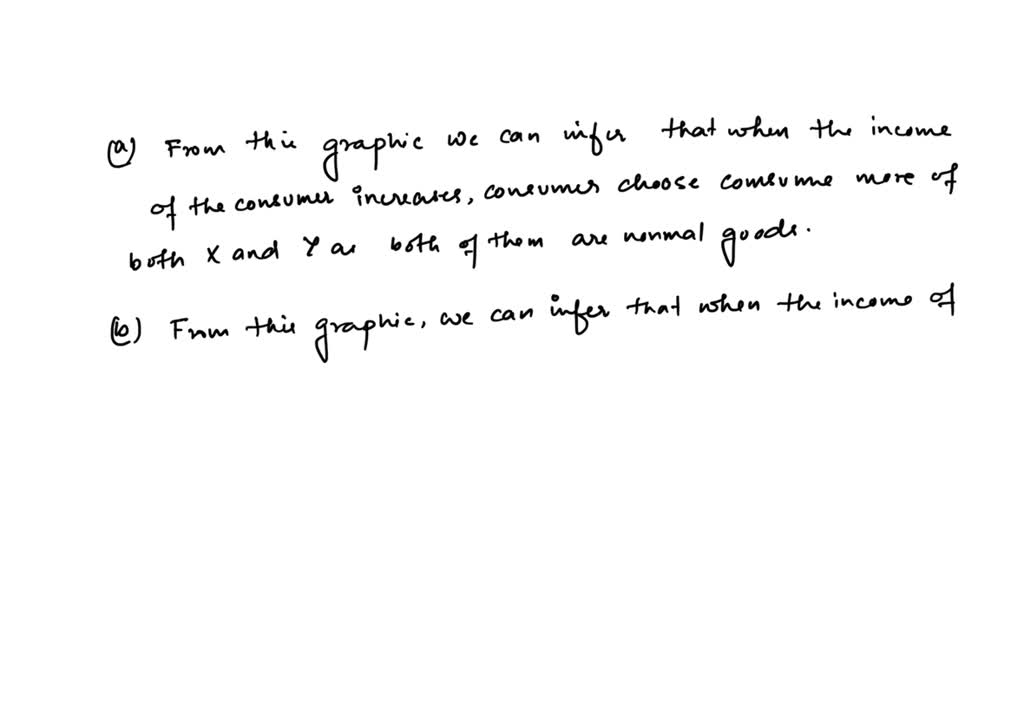 (a) From this graphic we can infer that when the income
of the consumer increases, consumers choose comsume more of
both X and Y as both of them are normal goods.
(b) From this graphic, we can infer that when the income of